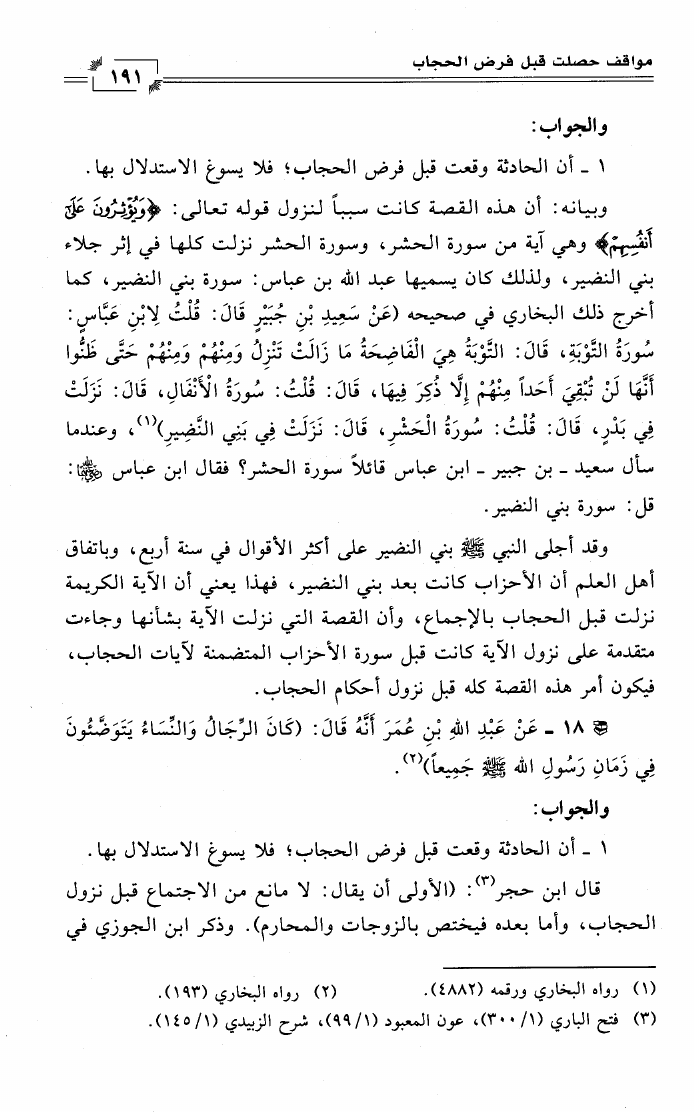 مواقف حصلت قبل فرض الحجاب
١٩١
والجواب:
١ ـ أن الحادثة وقعت قبل فرض الحجاب؛ فلا يسوغ الاستدلال بها.
وبيانه: أن هذه القصة كانت سبباً لنزول قوله تعالى: ﴿وَيُؤْثِرُونَ عَلَىٰ
أَنفُسِهِمْ﴾ وهي آية من سورة الحشر، وسورة الحشر نزلت كلها في إثر جلاء
بني النضير، ولذلك كان يسميها عبد الله بن عباس: سورة بني النضير، كما
أخرج ذلك البخاري في صحيحه (عَنْ سَعِيدِ بْنِ جُبَيْرٍ قَالَ: قُلْتُ لِابْنِ عَبَّاسٍ:
سُورَةُ التَّوْبَةِ، قَالَ: التَّوْبَةُ هِيَ الْفَاضِحَةُ مَا زَالَتْ تَنْزِلُ وَمِنْهُمْ وَمِنْهُمْ حَتَّى ظَنُّوا
أَنَّهَا لَنْ تُبْقِيَ أَحَداً مِنْهُمْ إِلَّا ذُكِرَ فِيهَا، قَالَ: قُلْتُ: سُورَةُ الْأَنْفَالِ، قَالَ: نَزَلَتْ
فِي بَدْرٍ، قَالَ: قُلْتُ: سُورَةُ الْحَشْرِ، قَالَ: نَزَلَتْ فِي بَنِي النَّضِيرِ)(١)، وعندما
سأل سعيد ـ بن جبير ـ ابن عباس قائلاً سورة الحشر؟ فقال ابن عباس ﵄:
قل: سورة بني النضير.
وقد أجلى النبي ﷺ بني النضير على أكثر الأقوال في سنة أربع، وباتفاق
أهل العلم أن الأحزاب كانت بعد بني النضير، فهذا يعني أن الآية الكريمة
نزلت قبل الحجاب بالإجماع، وأن القصة التي نزلت الآية بشأنها وجاءت
متقدمة على نزول الآية كانت قبل سورة الأحزاب المتضمنة لآيات الحجاب،
فيكون أمر هذه القصة كله قبل نزول أحكام الحجاب.
١٨ ـ عَنْ عَبْدِ اللهِ بْنِ عُمَرَ أَنَّهُ قَالَ: (كَانَ الرِّجَالُ وَالنِّسَاءُ يَتَوَضَّئُونَ
فِي زَمَانِ رَسُولِ الله ﷺ جَمِيعاً)(٢).
والجواب:
١ ـ أن الحادثة وقعت قبل فرض الحجاب؛ فلا يسوغ الاستدلال بها.
قال ابن حجر(٣): (الأولى أن يقال: لا مانع من الاجتماع قبل نزول
الحجاب، وأما بعده فيختص بالزوجات والمحارم). وذكر ابن الجوزي في
(١) رواه البخاري ورقمه (٤٨٨٢). (٢) رواه البخاري (١٩٣).
(٣) فتح الباري (٣٠٠/١)، عون المعبود (٩٩/١)، شرح الزبيدي (١٤٥/١).